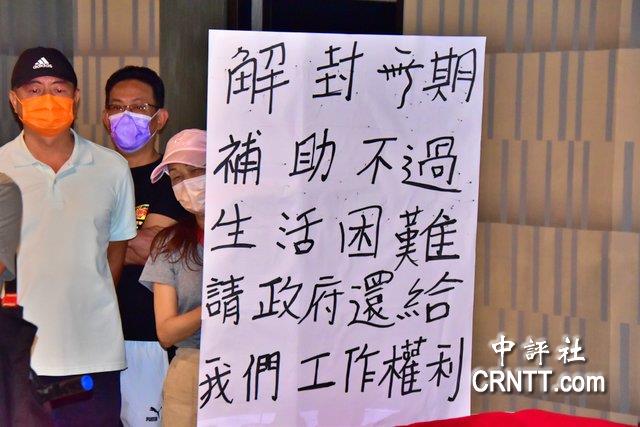 解封無期
補助不過
生活困難
請政府還給
我們工作權利
adidas
中評社
CRNTT.com